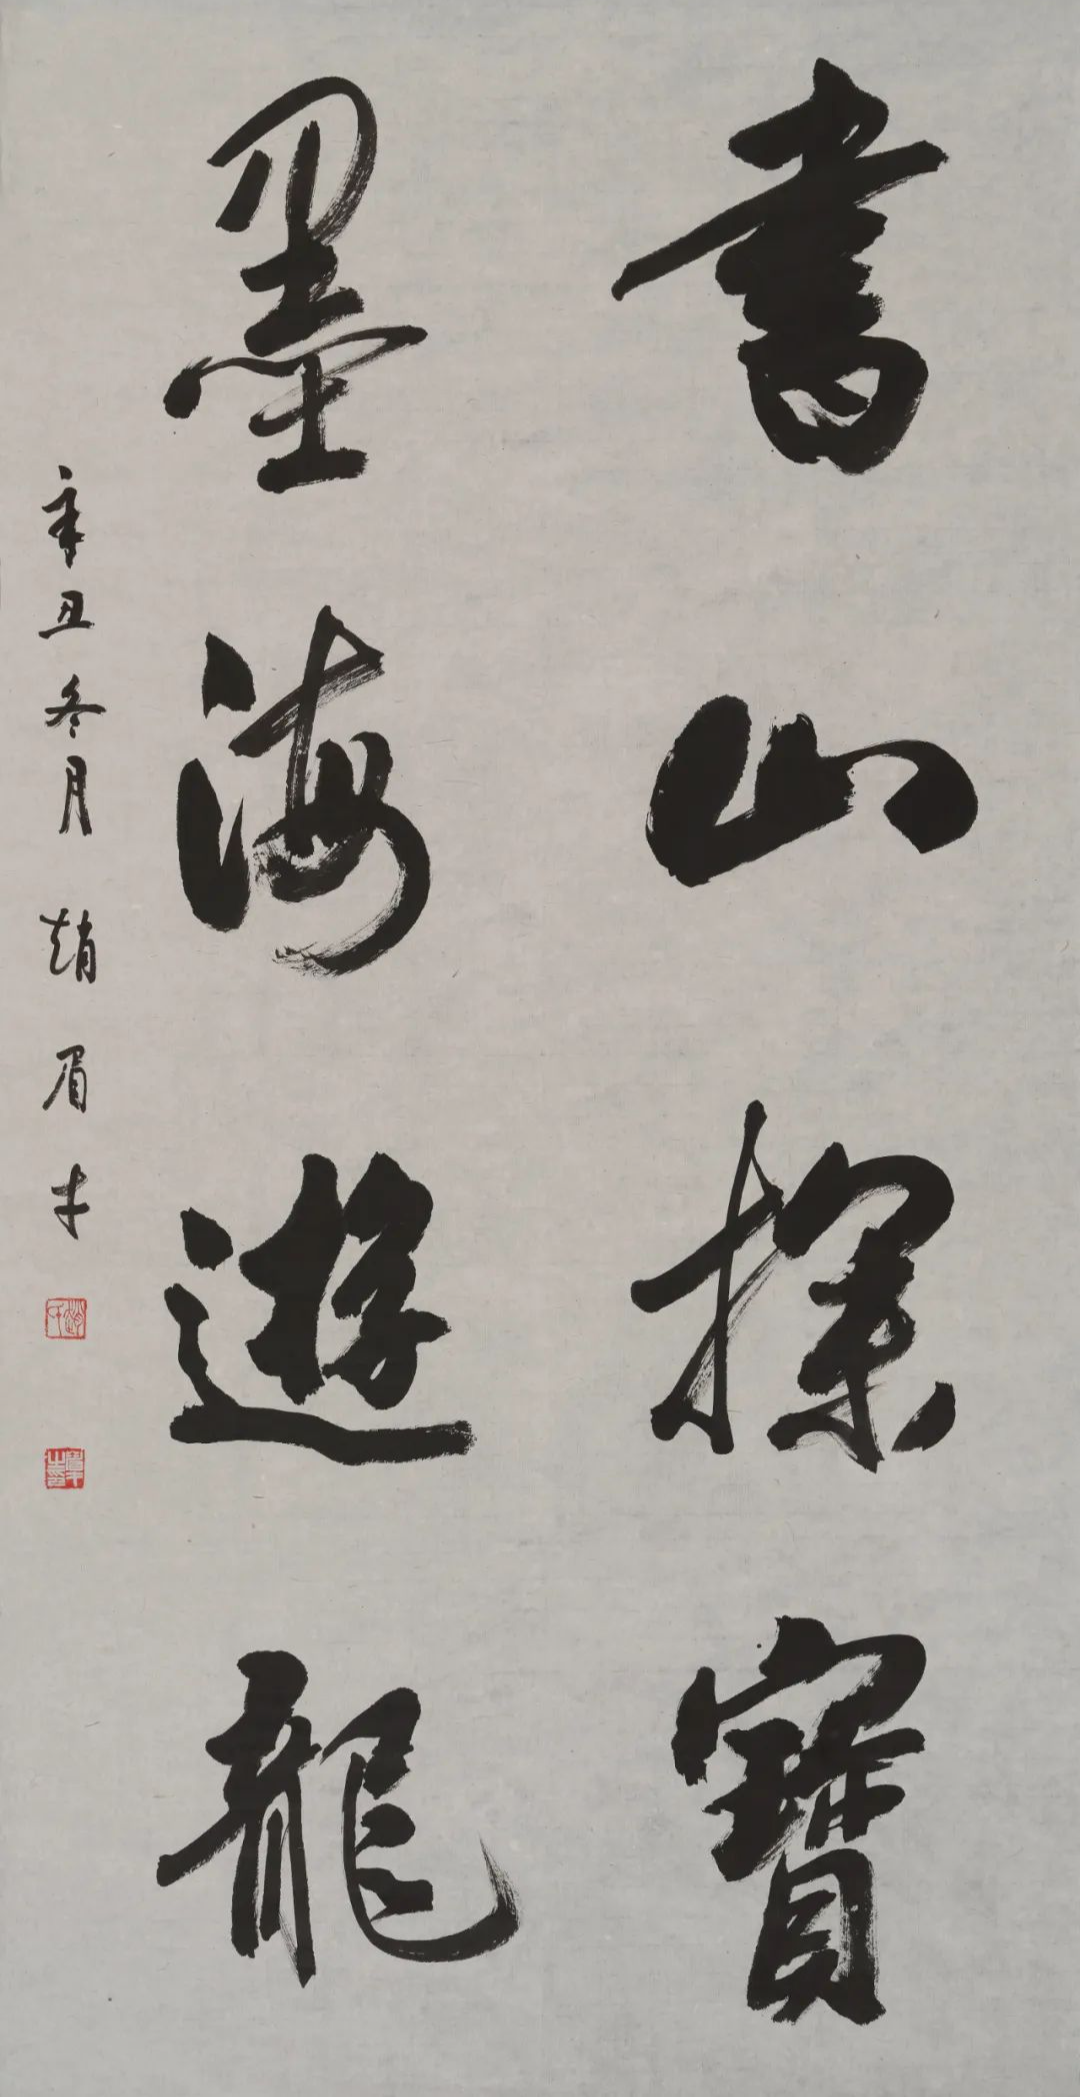 書山探寶
墨海遊龍
辛丑冬月 趙眉才